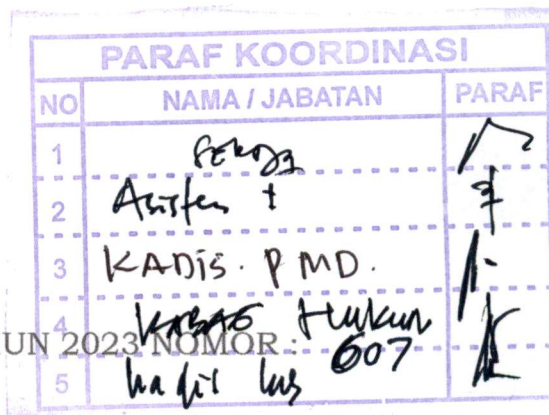 PARAF KOORDINASI
NO NAMA / JABATAN PARAF
1 SEKDA
2 Asisten I
3 KADIS. PMD.
4 KABAG Hukum
UN 2023 NOMOR : 607
5